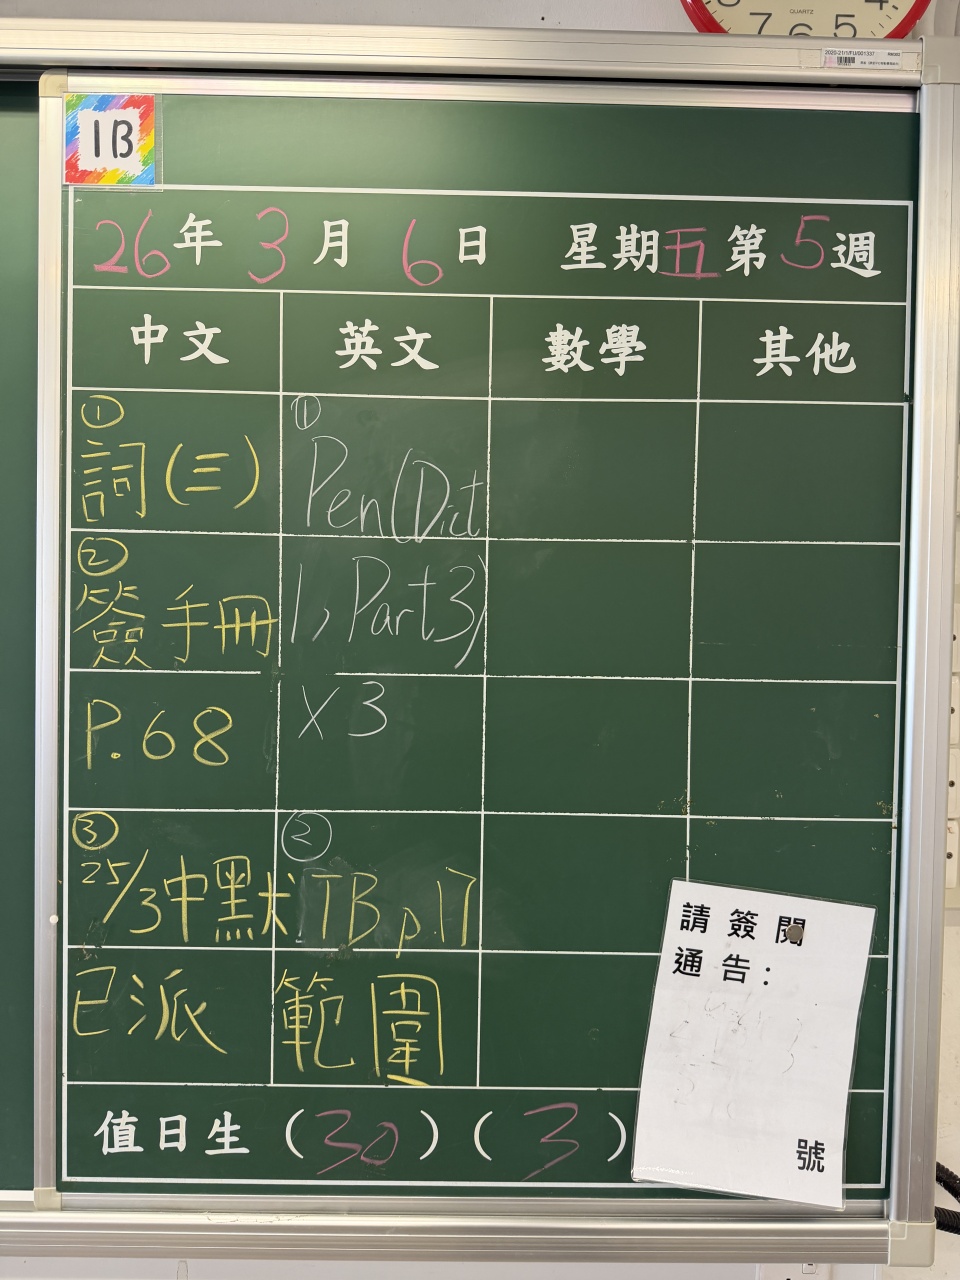 QUARTZ
4
7 6 5
2020-21/1/FU/001337
1B
26年3月6日 星期五第5週
中文 英文 數學 其他
①
詞(三)
②
簽手冊
P.68
③
25/3中默
已派 範圍
①
Pen(Dict
1, Part3)
X 3
②
TB p.17
請簽閱
通告:
號
值日生(30)(3)